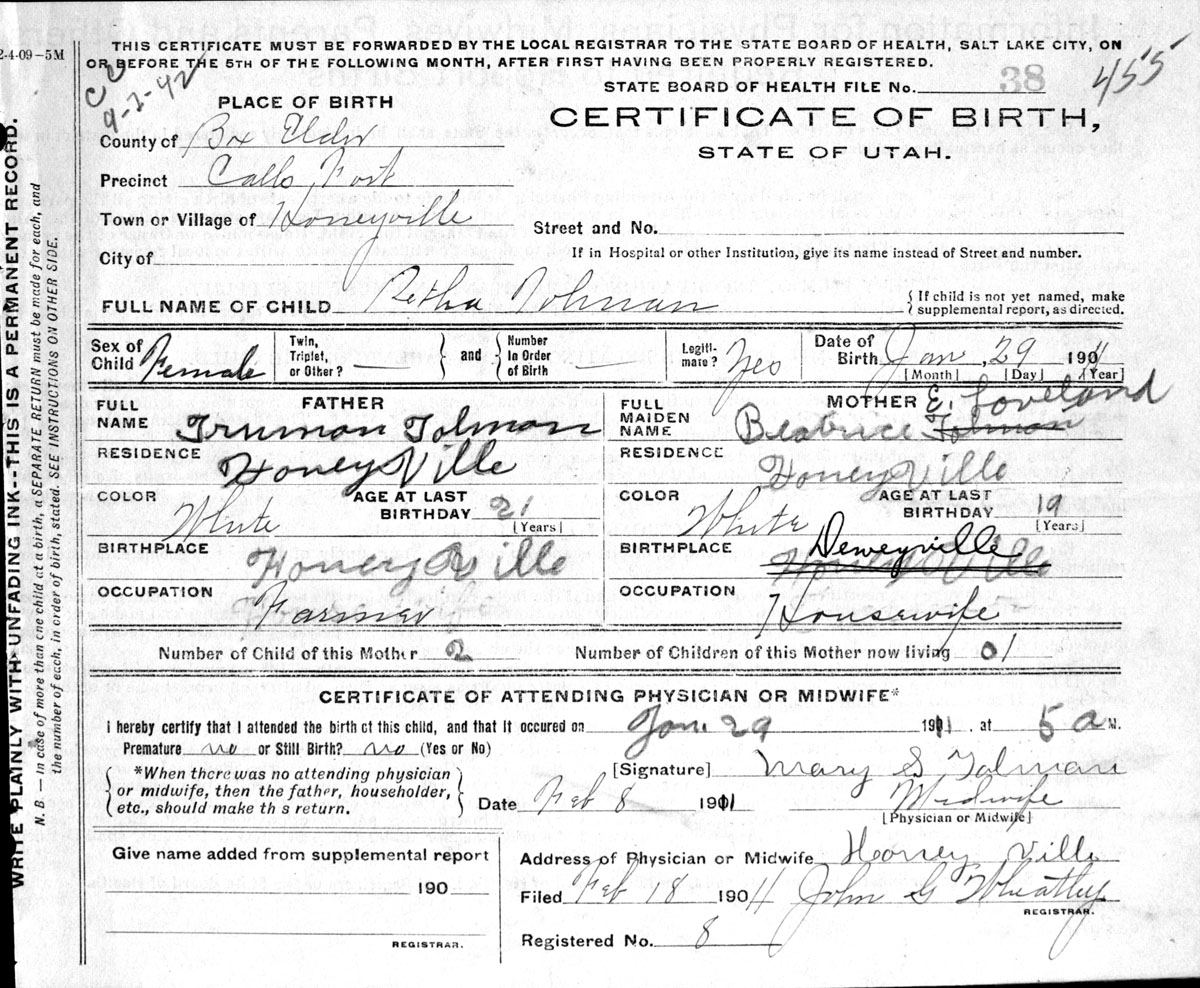 2-4-09-5M
THIS CERTIFICATE MUST BE FORWARDED BY THE LOCAL REGISTRAR TO THE STATE BOARD OF HEALTH, SALT LAKE CITY, ON
OR BEFORE THE 5TH OF THE FOLLOWING MONTH, AFTER FIRST HAVING BEEN PROPERLY REGISTERED.
STATE BOARD OF HEALTH FILE No. 38 455
9-2-42
PLACE OF BIRTH
CERTIFICATE OF BIRTH,
STATE OF UTAH.
County of Box Elder
Precinct Calls Fort
Town or Village of Honeyville
Street and No.
City of
If in Hospital or other Institution, give its name instead of Street and number.
FULL NAME OF CHILD Retha Tolman
{ If child is not yet named, make
supplemental report, as directed.
Sex of Child Female
Twin, Triplet, or Other? — } and { Number In Order of Birth —
Legiti-mate? Yes
Date of Birth Jan, 29 1901
[Month] [Day] [Year]
FATHER
FULL NAME Truman Tolman
MOTHER
FULL MAIDEN NAME Beatrice Tolman E. Loveland
RESIDENCE Honey Ville
RESIDENCE Honey Ville
COLOR White AGE AT LAST BIRTHDAY 21 [Years]
COLOR White AGE AT LAST BIRTHDAY 19 [Years]
BIRTHPLACE Honery Ville
BIRTHPLACE Honery Ville Deweyville
OCCUPATION Farmer
OCCUPATION Housewife
Number of Child of this Mother 2 Number of Children of this Mother now living 01
CERTIFICATE OF ATTENDING PHYSICIAN OR MIDWIFE*
I hereby certify that I attended the birth of this child, and that it occured on Jan. 29 1911, at 5 a M.
Premature no or Still Birth? no (Yes or No)
{ *When there was no attending physician
or midwife, then the father, householder,
etc., should make th s return. }
[Signature] Mary S Tolman
Date Feb 8 1911 Midwife
[Physician or Midwife]
Give name added from supplemental report
190
REGISTRAR.
Address of Physician or Midwife Honey Ville
Filed Feb 18 1911 John G Wheatley
REGISTRAR.
Registered No. 8
WRITE PLAINLY WITH UNFADING INK--THIS IS A PERMANENT RECORD.
N. B. — in case of more than one child at birth, a SEPARATE RETURN must be made for each, and
the number of each, in order of birth, stated. SEE INSTRUCTIONS ON OTHER SIDE.